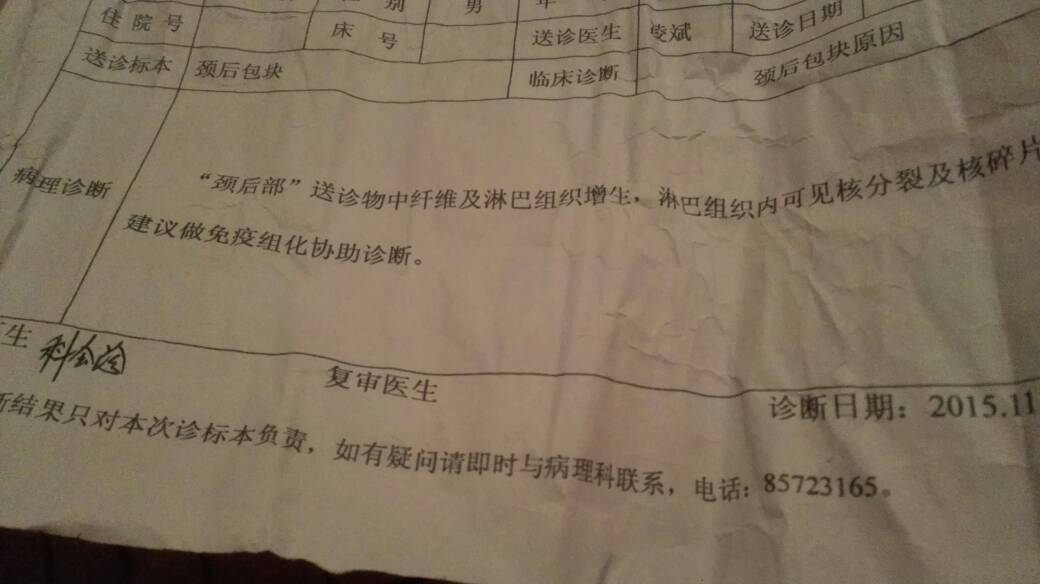 别 男
住院号 床号 送诊医生 凌斌 送诊日期
送诊标本 颈后包块 临床诊断 颈后包块原因
病理诊断 “颈后部”送诊物中纤维及淋巴组织增生，淋巴组织内可见核分裂及核碎片
建议做免疫组化协助诊断。
医生 科会诊 复审医生
诊断日期：2015.11
断结果只对本次诊标本负责，如有疑问请即时与病理科联系，电话：85723165。